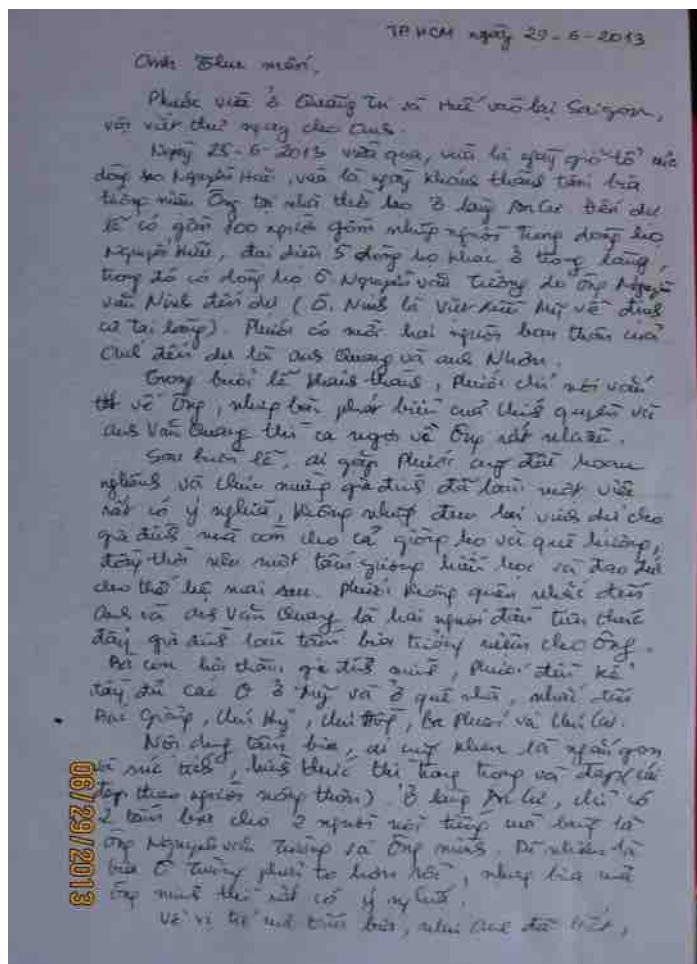 TP. HCM ngày 29-6-2013
Anh Thu mến,
Phước vừa ở Quảng Trị và Huế vào lại Saigon,
vội viết thư ngay cho Anh.
Ngày 25-6-2013 vừa qua, vừa là ngày giỗ tổ của
dòng họ Nguyễn Hữu, vừa là ngày khánh thành tấm bia
tưởng niệm Ông tại nhà thờ họ ở làng An Cư. Đến dự
lễ có gần 100 người gồm những người trong dòng họ
Nguyễn Hữu, đại diện 5 dòng họ khác ở trong làng,
trong đó có dòng họ Ô. Nguyễn văn Tường do ông Nguyễn
văn Ninh đến dự (Ô. Ninh là Việt Kiều Mỹ về định
cư tại làng). Phước có mời hai người bạn thân của
Anh đến dự là anh Quang và anh Nhơn.
Trong buổi lễ khánh thành, Phước chỉ nói vắn
về Ông, nhưng bài phát biểu của chính quyền và
anh Văn Quang thì ca ngợi về Ông rất nhiều.
Sau buổi lễ, ai gặp Phước cũng đều hoan
nghênh và chúc mừng gia đình đã làm một việc
rất có ý nghĩa, không những đem lại vinh dự cho
gia đình mà còn cho cả giòng họ và quê hương,
đồng thời nêu một tấm gương hiếu học và đạo đức
cho thế hệ mai sau. Phước không quên nhắc đến
Anh và anh Văn Quang là hai người đầu tiên thúc
đẩy gia đình làm tấm bia tưởng niệm cho Ông.
Bà con hỏi thăm gia đình mình, Phước đều kể
đầy đủ các Ô ở Mỹ và ở quê nhà, nhắc đến
Bác Giảng, chú Hỷ, chú, Bà Phước và chú Cư.
Nội dung tấm bia, ai cũng khen là ngắn gọn
và súc tích, hình thức thì trang trọng và đẹp (cái
đẹp theo người nông thôn). Ở làng An Cư, chỉ có
2 tấm bia cho 2 người nổi tiếng mà làng là
Ông Nguyễn văn Tường và Ông mình. Dĩ nhiên là
bia Ô Tường phải to hơn rồi, nhưng bia mà
Ông mình thì rất có ý nghĩa.
Về vị trí mà tấm bia, như Anh đã biết,
06/29/2013